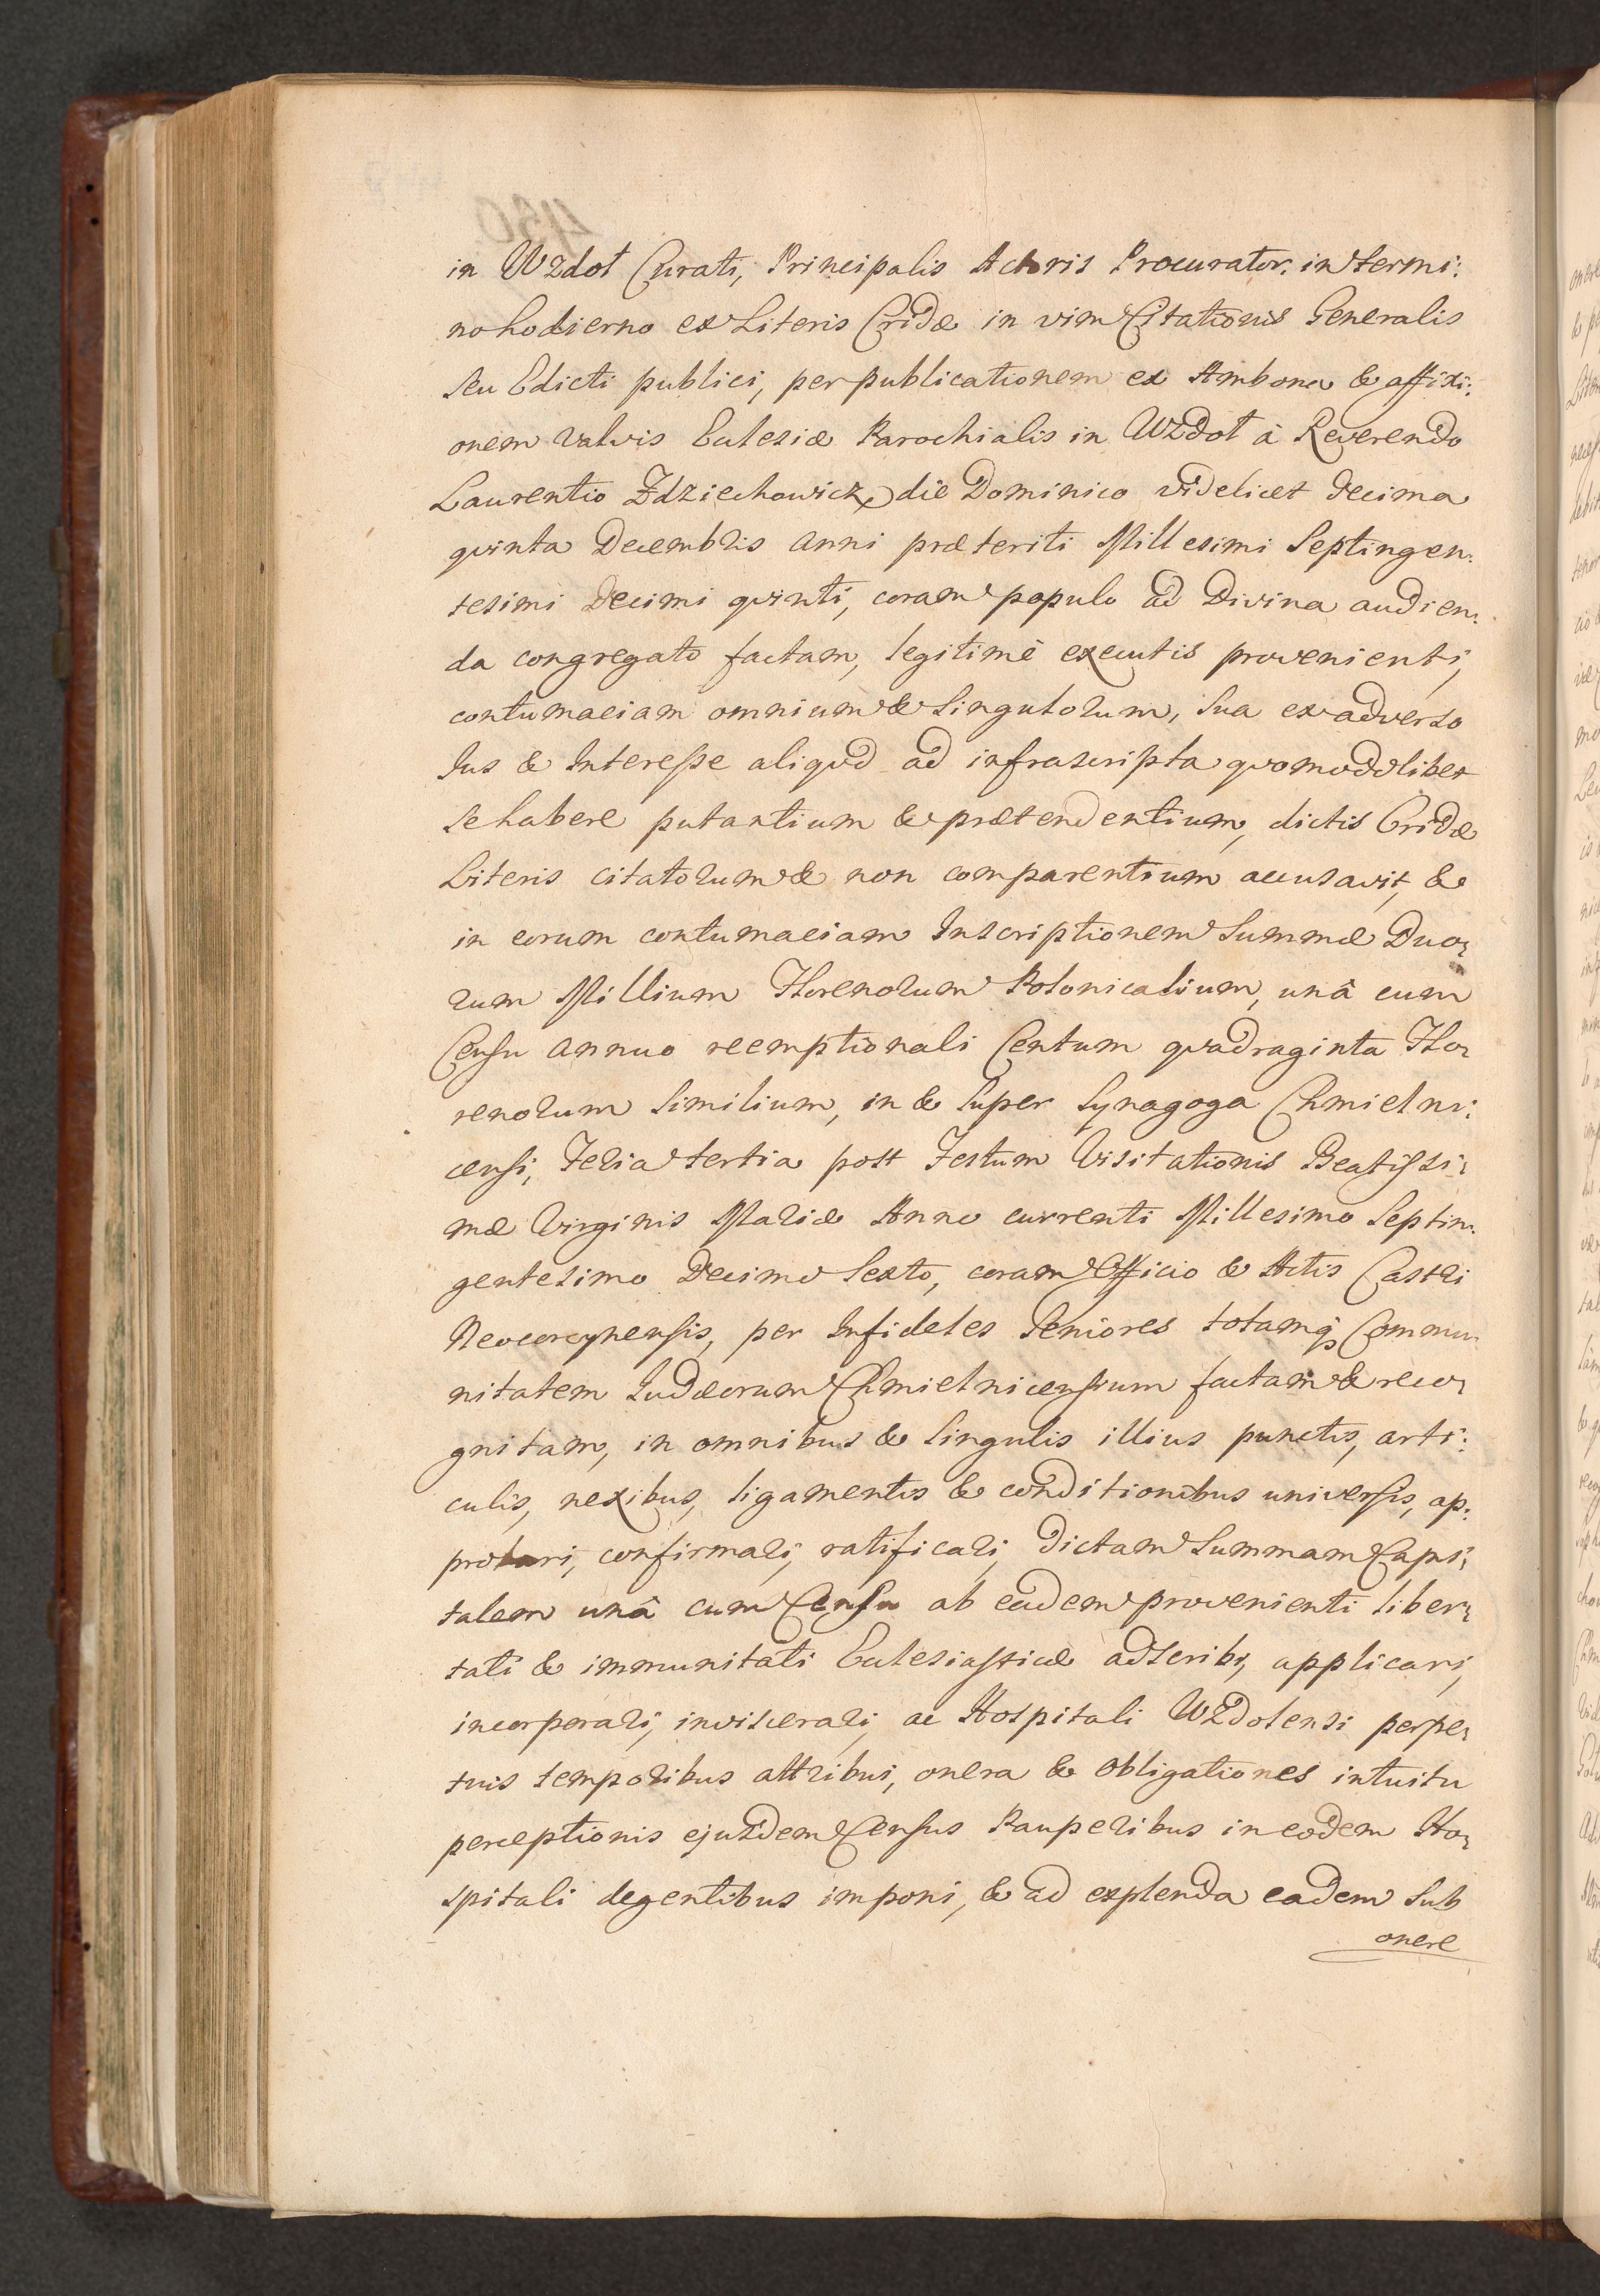 in Wzdoł Curati, Principalis Actoris Procurator. in termi:
no hodierno ex Literis Cridæ in vim Citationis Generalis
seu Edicti publici, per publicationem ex Ambona & affixi:
onem valvis Eclesiæ Parochialis in Wzdoł à Reverendo
Laurentio Zdziechowicz die Dominico videlicet decima
qvinta Decembris anni præteriti Millesimi Septingen:
tesimi Decimi qvinti, coram populo ad Divina audien:
da congregato factam, legitimè executis provenienti,
contumaciam omnium & singulorum, sua ex adverso
Jus & Interesse aliqvod ad infrascripta qvomodolibet
se habere putantium & prætendentium, dictis Cridæ
Literis citatorum & non comparentium accusavit, &
in eorum contumaciam Inscriptionem Summæ Duo:
rum Millium Florenorum Polonicalium, unâ cum
Censu annuo reemptionali Centum qvadraginta Flo:
renorum similium, in & super Synagoga Chmielni:
censi, Feria tertia post Festum Visitationis Beatissi:
mæ Virginis Mariæ Anno currenti Millesimo Septin:
gentesimo Decimo Sexto, coram Officio & Actis Castri
Neocorcynensis, per Infideles Seniores totamq; Commu:
nitatem Judæorum Chmielnicensium factam & reco:
gnitam, in omnibus & singulis illius punctis, arti:
culis, nexibus, ligamentis & conditionibus universis, ap:
probari, confirmari, ratificari, dictam Summam Capi:
talem unâ cum Censu ab eadem provenienti liber:
tati & immunitati Eclesiasticæ adscribi, applicari,
incorporari, inviscerari, ac Hospitali Wzdolensi perpe:
tuis temporibus attribui, onera & obligationes intuitu
perceptionis ejusdem Census Pauperibus in eodem Ho:
spitali degentibus imponi, & ad explenda eadem sub
onere